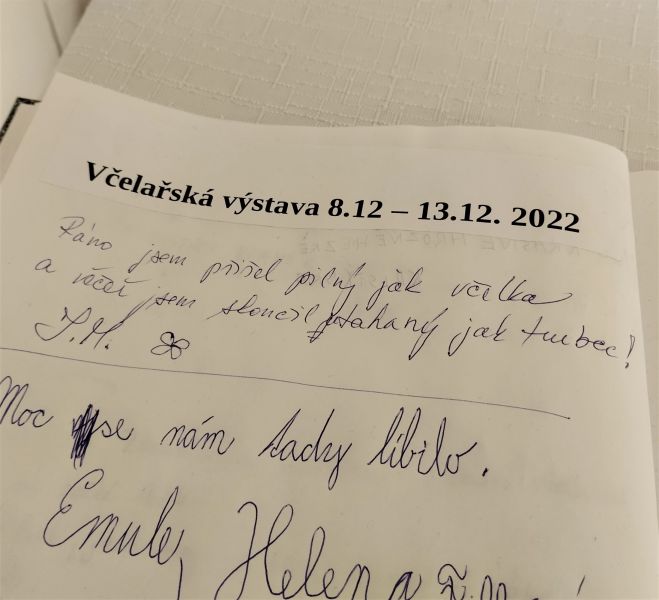 Včelařská výstava 8.12 – 13.12. 2022
Ráno jsem přišel pilný jak včelka
a večer jsem skončil utahaný jak trubec!
Moc se nám tady líbilo.
Helena